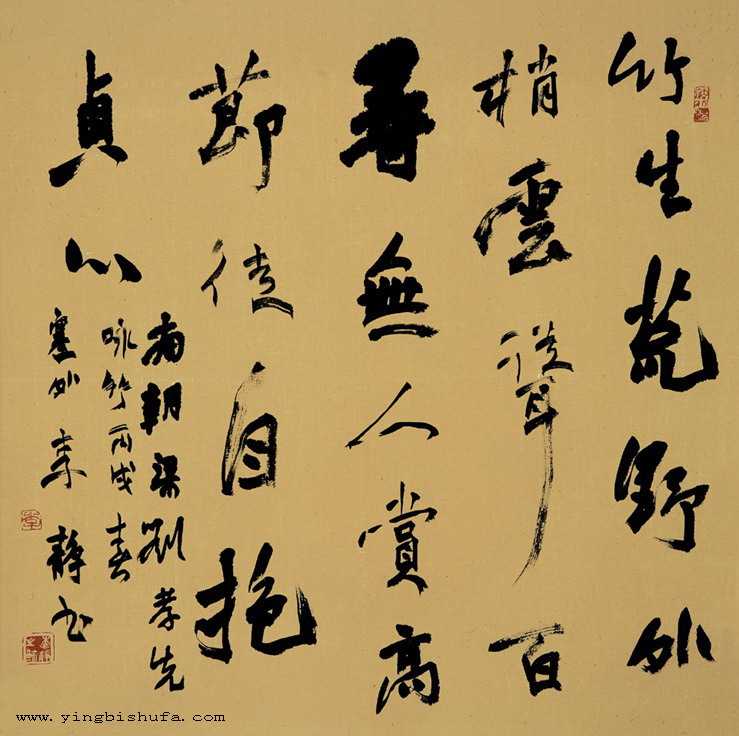 竹生荒野外
梢雲聳百
尋無人賞高
節徒自抱
貞心
南朝梁刘孝先
咏竹丙戌春
塞外 静书
www.yingbishufa.com